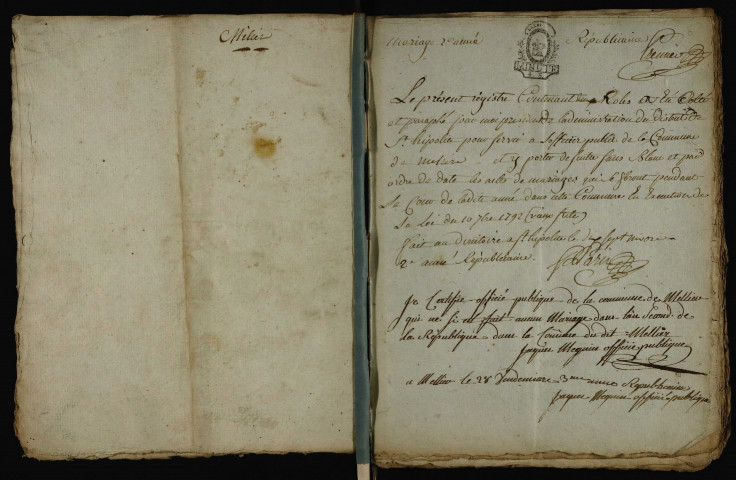 Mélier
Mariage 2e année Républicaine
Le présent registre Contenant Roles a Eté Cotté
et paraphé par moi president de ladministration du district de
St hipolite pour servir a lofficier public de la Commune
de et y porter de suite sans blanc et par
ordre de date les actes de mariages qui se feront pendant
le Cour de ladite année dans cette Commune En Execution de
la Loi du 20 7bre 1792 (vieux stile)
fait au Directoire a St hipolite le
2e année Républicaine.
Je Certifie officié publique de la commune de Mellier
que ne si est fait aucun Mariage dans lan second de
la République dans la Commune du dit Mellier
Jaques Meguin officié publique
a Mellier le 28 Vendemiare 3me année Republicaine
Jaques Meguin officié publique